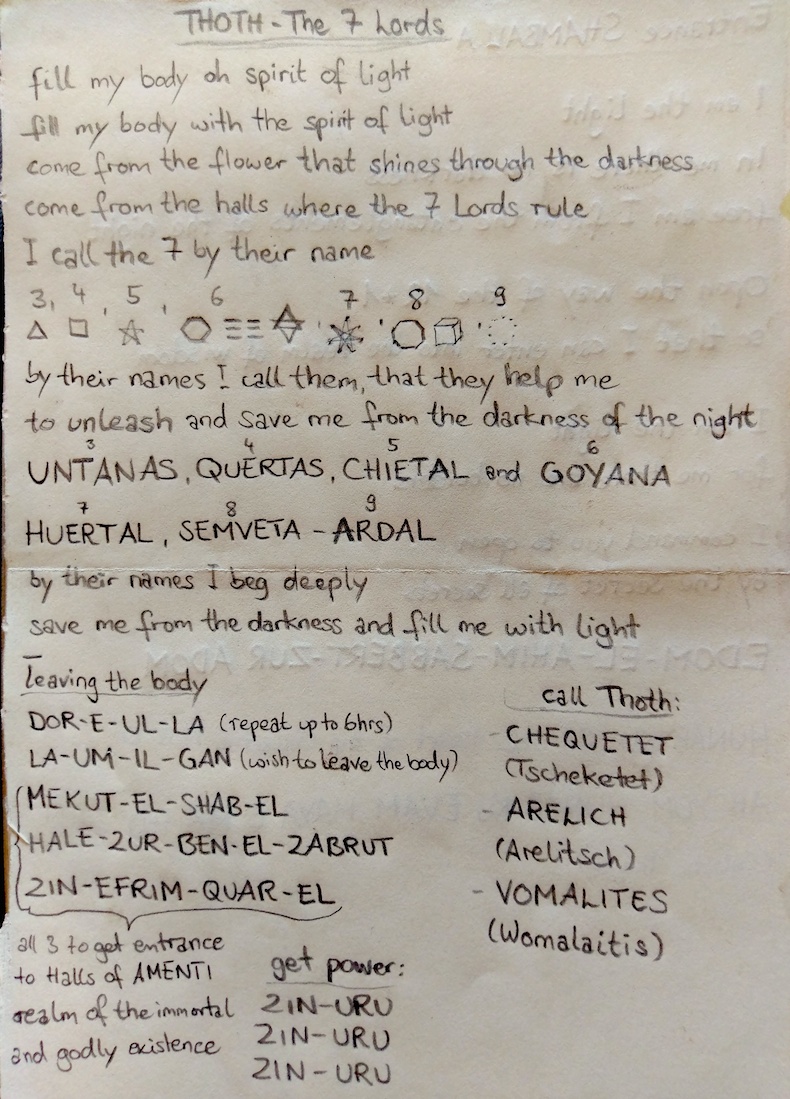 THOTH - The 7 Lords
fill my body oh spirit of light
fill my body with the spirit of light
come from the flower that shines through the darkness
come from the halls where the 7 Lords rule
I call the 7 by their name
3, 4, 5, 6 7 8 9
by their names I call them, that they help me
to unleash and save me from the darkness of the night
3 4 5 6
UNTANAS, QUERTAS, CHIETAL and GOYANA
7 8 9
HUERTAL, SEMVETA - ARDAL
by their names I beg deeply
save me from the darkness and fill me with light
leaving the body
DOR-E-UL-LA (repeat up to 6hrs)
LA-UM-IL-GAN (wish to leave the body)
MEKUT-EL-SHAB-EL
HALE-ZUR-BEN-EL-ZABRUT
ZIN-EFRIM-QUAR-EL
all 3 to get entrance
to Halls of AMENTI
realm of the immortal
and godly existence
call Thoth:
- CHEQUETET
(Tscheketet)
- ARELICH
(Arelitsch)
- VOMALITES
(Womalaitis)
get power:
ZIN-URU
ZIN-URU
ZIN-URU